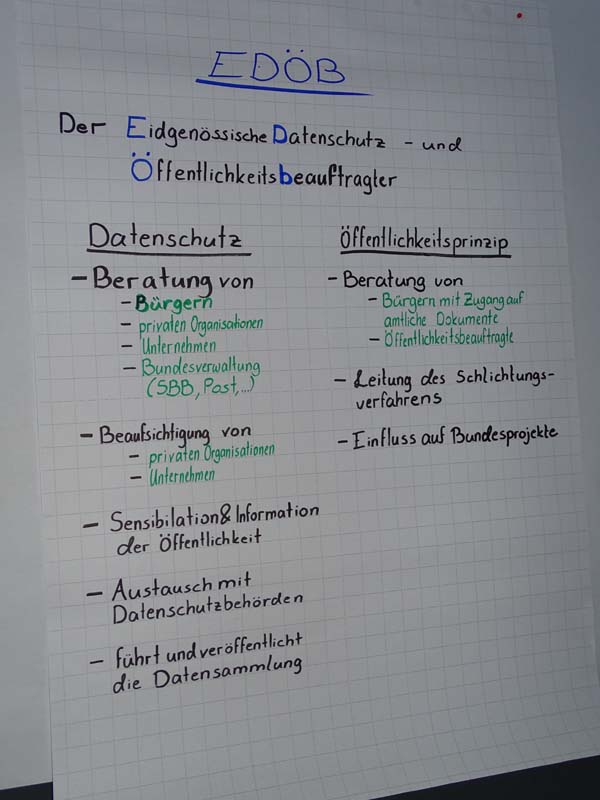 EDÖB
Der Eidgenössische Datenschutz - und
Öffentlichkeitsbeauftragter
Datenschutz
- Beratung von
- Bürgern
- privaten Organisationen
- Unternehmen
- Bundesverwaltung
(SBB, Post,...)
- Beaufsichtigung von
- privaten Organisationen
- Unternehmen
- Sensibilation & Information
der Öffentlichkeit
- Austausch mit
Datenschutzbehörden
- führt und veröffentlicht
die Datensammlung
Öffentlichkeitsprinzip
- Beratung von
- Bürgern mit Zugang auf
amtliche Dokumente
- Öffentlichkeitsbeauftragte
- Leitung des Schlichtungs-
verfahrens
- Einfluss auf Bundesprojekte